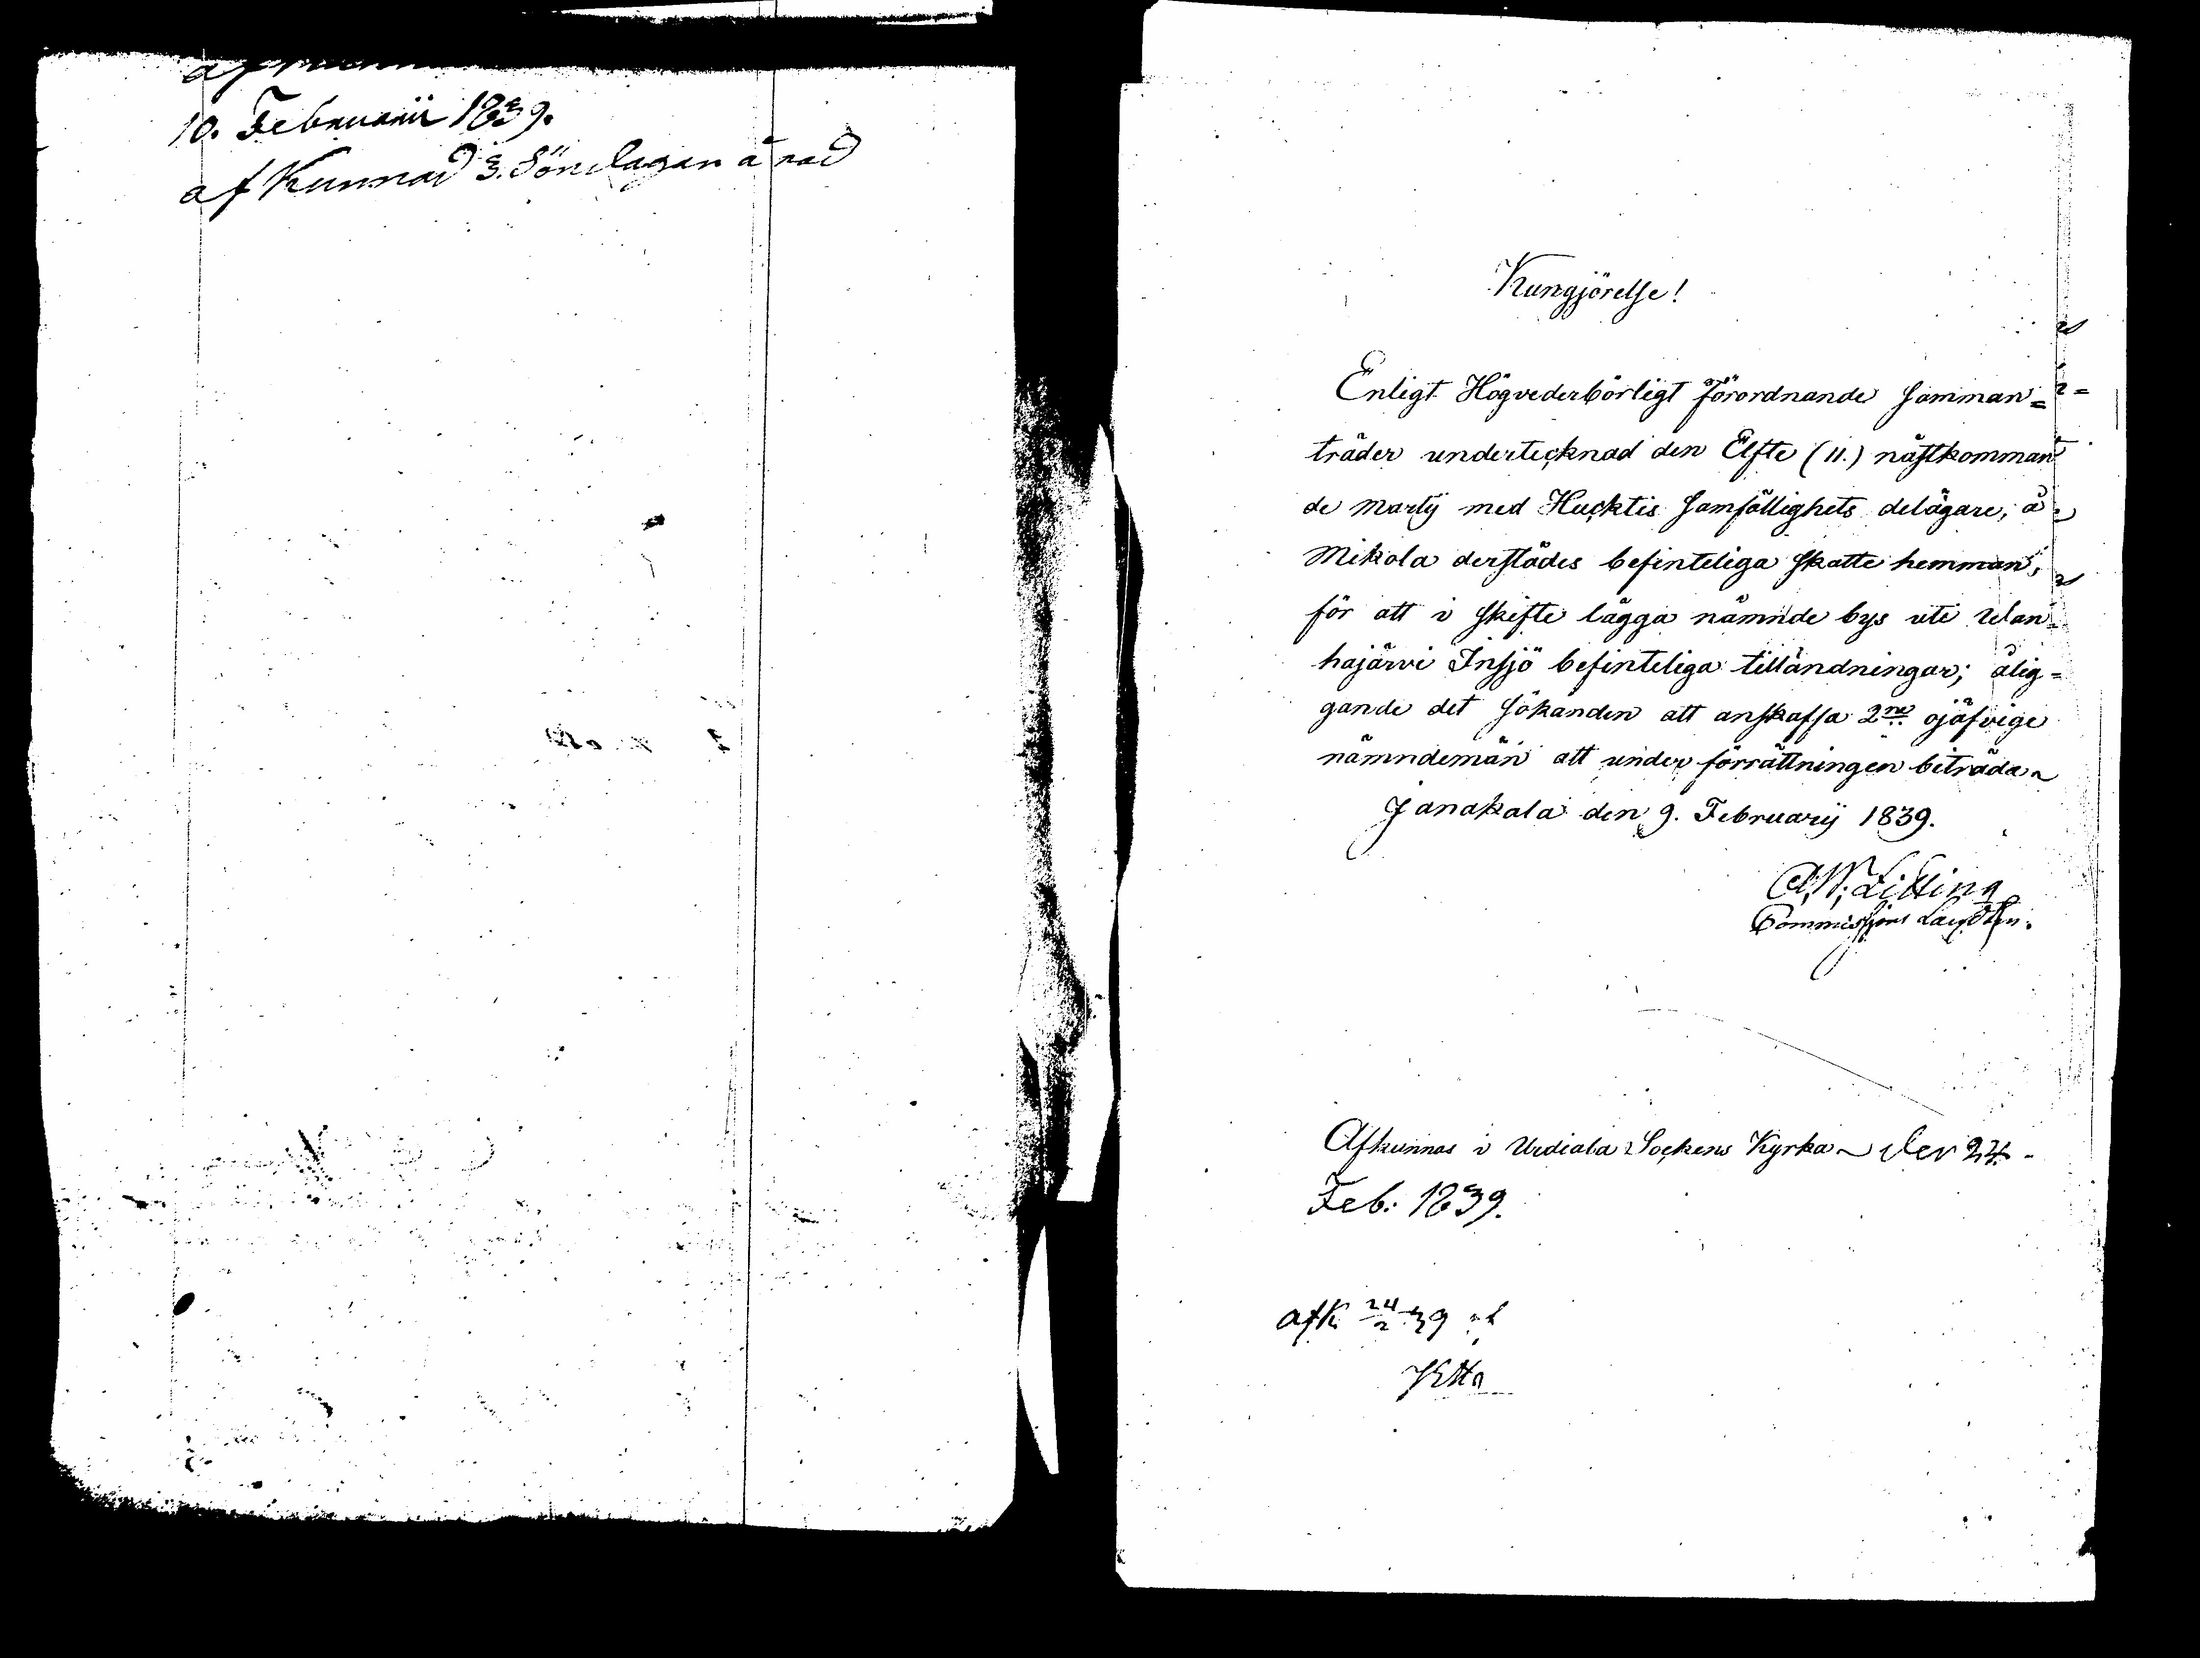 10. Februarii 1839.
af Kunnad 3. Söndagar å rad
Kungjörelse!
Enligt Högvederbörligt Förordnande samman=
träder undertecknad den Elfte (11.) nästkomman
de Martij med Hucktis Samfällighets delägare, å
Mikola derstädes befinteliga Skatte hemman,
för att i Skifte lägga nämnde bys uti Wan=
hajärvi Insjö befinteliga tilländningar; ålig=
gande det Sökanden att anskaffa 2ne ojäfvige
nämndemän att under förrättningen biträda
Janakala den 9. Februarij 1839.
C.W. Lilling
Commissions
Afkunnas i Urdiala Sockens Kyrka den 24
Feb: 1839.
afk 24/2 39